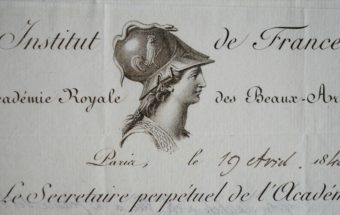 Institut de France
cadémie Royale des Beaux-Ar
Paris, le 19 Avril 184
Le Secretaire perpétuel de l'Académ